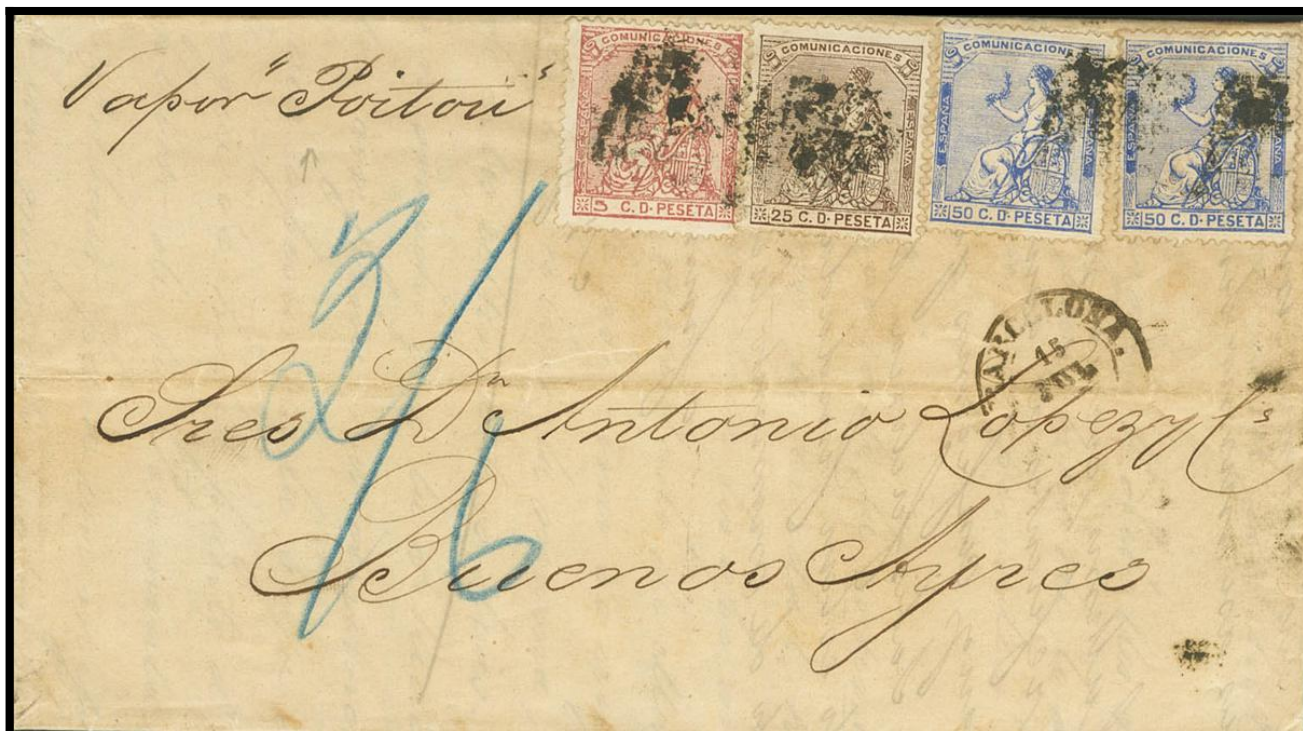 Vapor "Poitou"
COMUNICACIONES
ESPAÑA
5 C. D. PESETA
COMUNICACIONES
ESPAÑA
25 C. D. PESETA
COMUNICACIONES
ESPAÑA
50 C. D. PESETA
COMUNICACIONES
ESPAÑA
50 C. D. PESETA
BARCELONA.
15
JUL
Sres Dn Antonio Lopez y Cs
Buenos Ayres